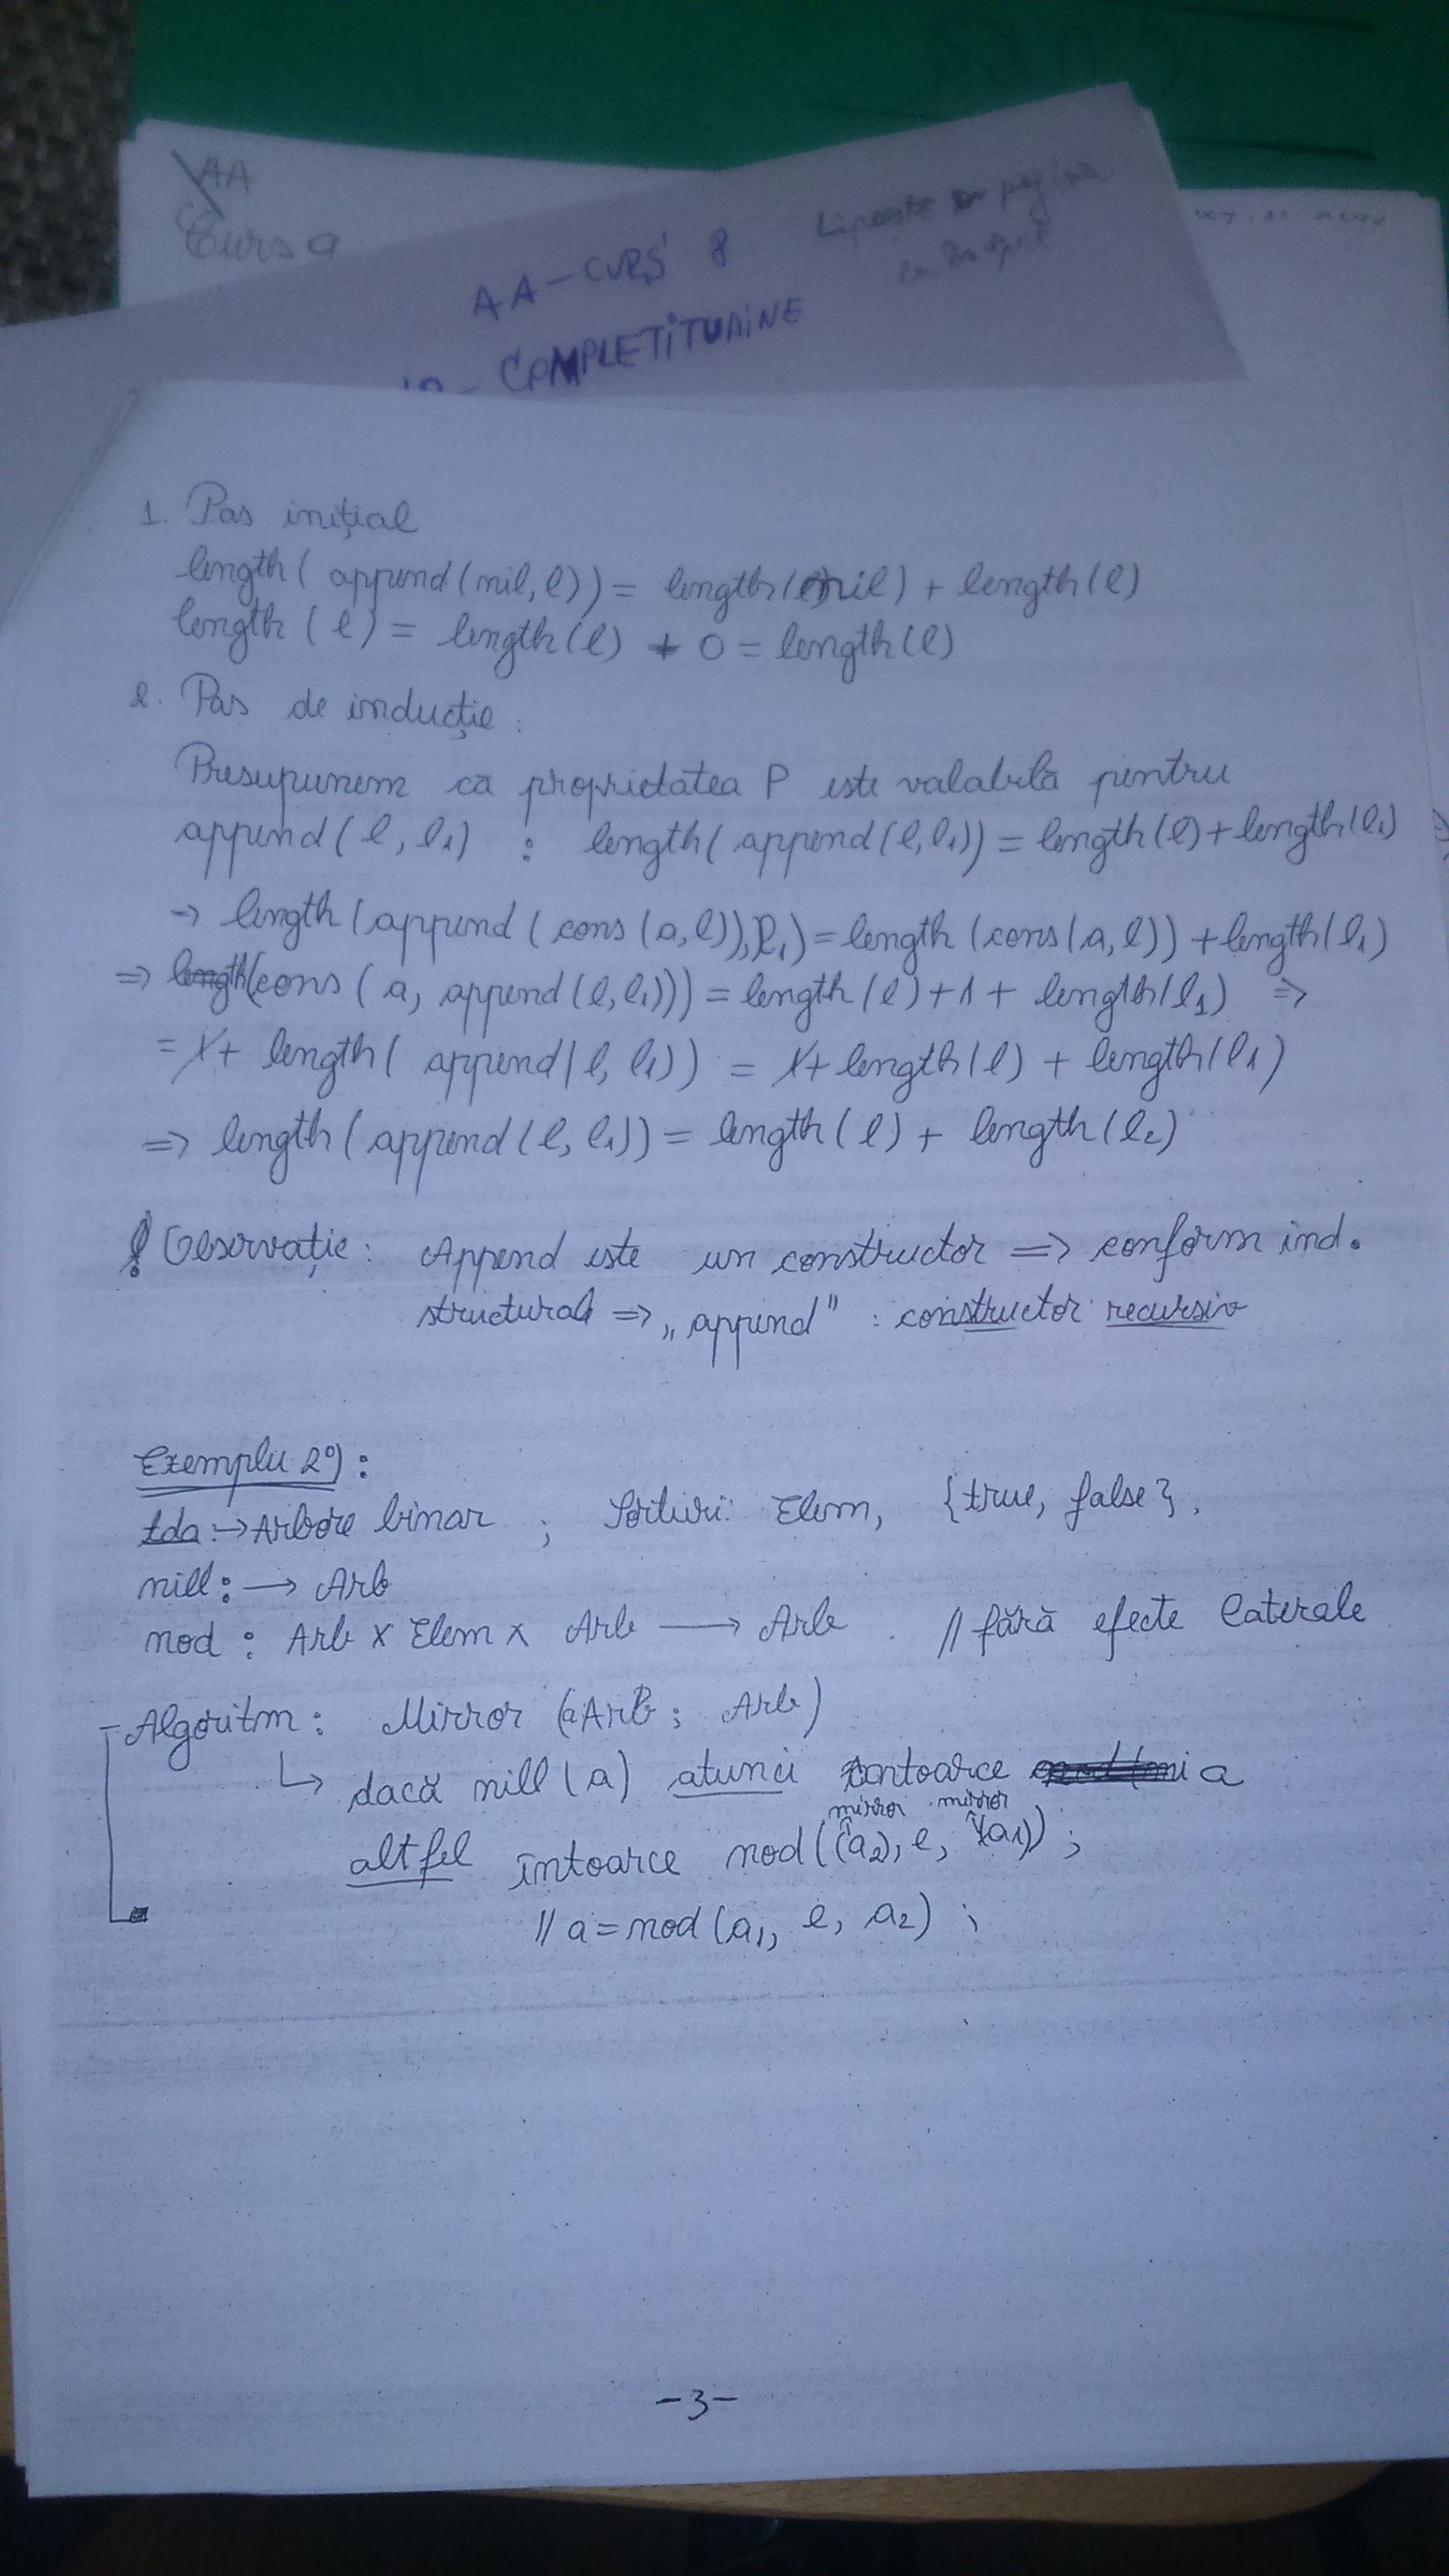 AA
Curs 9
AA - CURS 8
COMPLETITUDINE
Lipsește pagina
1. Pas inițial
length( append(nil, l)) = length(nil) + length(l)
length (l) = length(l) + 0 = length(l)
2. Pas de inducție :
Presupunem că proprietatea P este valabilă pentru
append(l, l1) : length( append(l, l1)) = length(l) + length(l1)
→ length (append ( cons (a, l)), l1) = length (cons(a, l)) + length(l1)
=> length(cons ( a, append(l, l1))) = length(l) + 1 + length(l1) =>
= 1+ length( append(l, l1)) = 1+ length(l) + length(l1)
=> length (append(l, l1)) = length(l) + length(l2)
! Observație: Append este un constructor => conform ind.
structurale => „append" : constructor recursiv
Exemplu 2°) :
tda :→ Arbore binar ; Sorturi: Elem, {true, false},
nill : → Arb
nod : Arb x Elem x Arb → Arb . // fără efecte laterale
Algoritm : Mirror (a Arb ; Arb)
↳ dacă nill (a) atunci întoarce a
mirror mirror
altfel întoarce nod((a2), e, (a1)) ;
// a = nod (a1, e, a2) ;
- 3 -